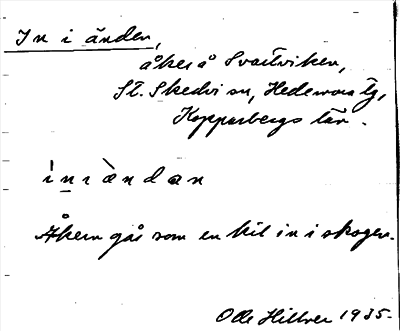 In i änden,
åker å Svartviken,
St. Skedvi sn, Hedemora tg,
Kopparbergs län.
ìnıàndan
Åkern går som en kil in i skogen.
Olle Hillver 1935.